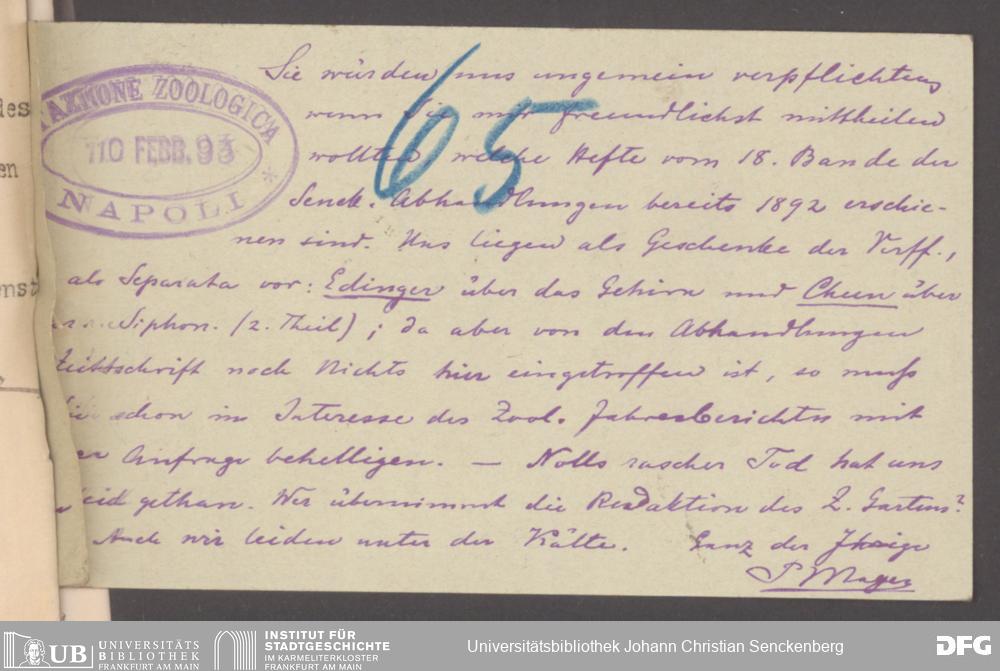 des
en
nst
STAZIONE ZOOLOGICA
10 FEBB. 93
NAPOLI *
65
Sie würden uns ungemein verpflichten,
wenn Sie mir freundlichst mittheilen
wollten, welche Hefte vom 18. Bande der
Senck. Abhandlungen bereits 1892 erschie-
nen sind. Uns liegen als Geschenke der Verff.,
als Separata vor: Edinger über das Gehirn und Chun über
Siphon. (2. Theil); da aber von den Abhandlungen
Zeitschrift noch Nichts hier eingetroffen ist, so muß
schon im Interesse des Zool. Jahresberichtes mit
er Anfrage behelligen. — Nolls rascher Tod hat uns
leid gethan. Wer übernimmt die Redaktion des Z. Gartens?
Auch wir leiden unter der Kälte. Ganz der Ihrige
P Mayer
UB UNIVERSITÄTS BIBLIOTHEK FRANKFURT AM MAIN
INSTITUT FÜR STADTGESCHICHTE IM KARMELITERKLOSTER FRANKFURT AM MAIN
Universitätsbibliothek Johann Christian Senckenberg
DFG